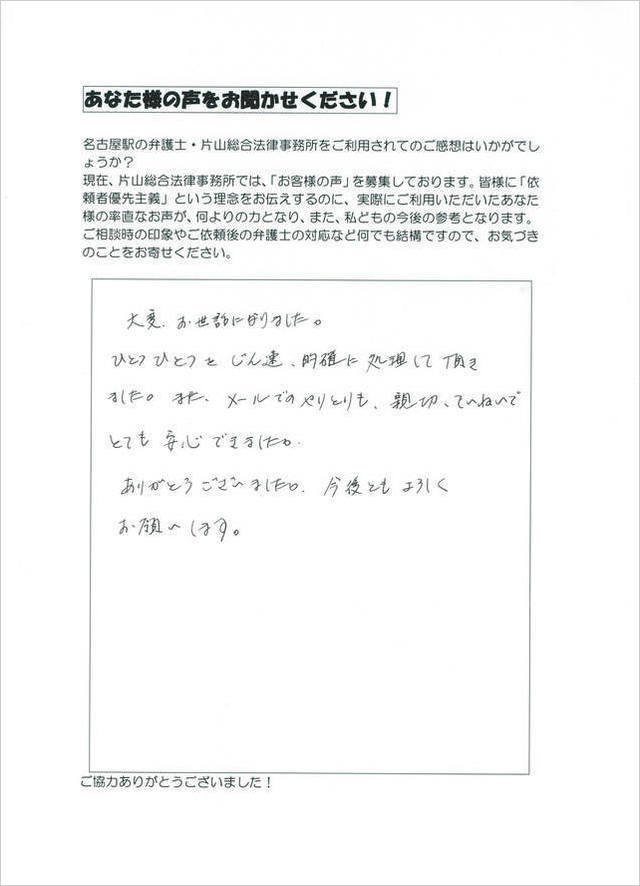 あなた様の声をお聞かせください！
名古屋駅の弁護士・片山総合法律事務所をご利用されてのご感想はいかがでし
ょうか？
現在、片山総合法律事務所では、「お客様の声」を募集しております。皆様に「依
頼者優先主義」という理念をお伝えするのに、実際にご利用いただいたあなた
様の率直なお声が、何よりの力となり、また、私どもの今後の参考となります。
ご相談時の印象やご依頼後の弁護士の対応など何でも結構ですので、お気づき
のことをお寄せください。
大変、お世話になりました。
ひとつひとつを じん速、的確に処理して頂き
ました。また、メールでのやりとりも、親切、ていねいで
とても安心できました。
ありがとうございました。今後ともよろしく
お願いします。
ご協力ありがとうございました！